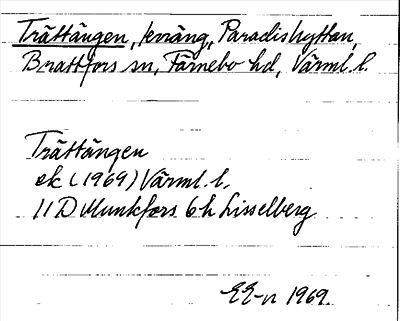 Trättängen, kväng, Paradishyttan,
Brattfors sn, Färnebo hd, Värml. l.
Trättängen
ek (1969) Värml. l.
11 D Munkfors 6 h Lisselberg
EE-n 1969.